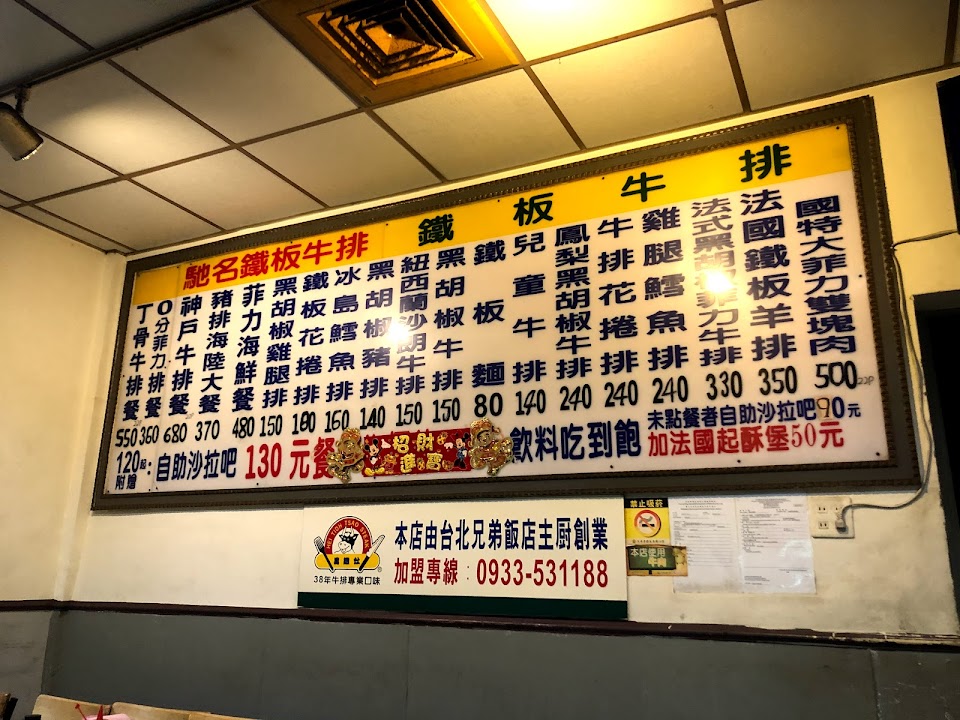 馳名鐵板牛排 鐵板牛排
丁骨牛排餐 550
O分菲力排餐 360
神戶牛排餐 680
豬排海陸大餐 370
菲力海鮮餐 480
黑胡椒雞腿排 150
鐵板花捲排 180
冰島鱈魚排 160
黑胡椒豬排 140
紐西蘭沙朗牛排 150
黑胡椒牛排 150
鐵板麵 80
兒童牛排 140
鳳梨黑胡椒牛排 240
牛排花捲排 240
雞腿鱈魚排 240
法式黑胡椒菲力牛排 330
法國鐵板羊排 350
國特大菲力雙塊肉 500
120起附贈:自助沙拉吧 130元餐
招財進寶
飲料吃到飽
未點餐者自助沙拉吧90元
加法國起酥堡50元
38年牛排專業口味
本店由台北兄弟飯店主廚創業
加盟專線:0933-531188
禁止吸菸
本店使用